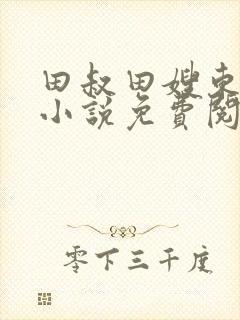 田叔田嫂束
小说免费阅
零下三千度